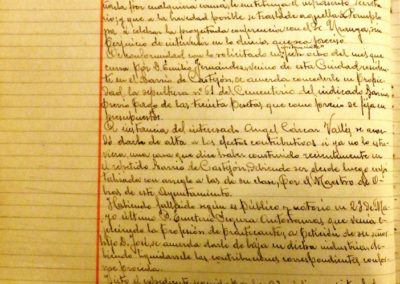 nada por cualquiera causa, le sustituya el
rio; y que a la brevedad posible se traslade aquella a Pamplo
na, a celebrar la proyectada conferencia con el Sr. Uranga, sin
perjuicio de intervenir en lo demás que sea preciso.
De conformidad con lo solicitado en ocho del mes que
cursa por D. Emilio Fernández, vecino de esta Ciudad, reside
te en el Barrio de Castejón, se acuerda concederle en propie
dad, la sepultura nº 61 del Cementerio del indicado Barrio
previo pago de las treinta pesetas que como precio se fija en
presupuestos.
A instancia del interesado Angel Cáscar Vallés, se acor
dó darle de alta a los efectos contributivos si ya no lo estu
viera una casa que dice haber construido recientemente en
el repetido Barrio de Castejón, debiendo ser desde luego va
labrado con arreglo a las de su clase, por el Maestro de O
bras de este Ayuntamiento.
Habiendo fallecido según es público y notorio en 23 de Ma
yo último D. Emeterio que venía e
jerciendo la profesión de practicante, a petición de su seño
hijo D. José, se acuerda darle de baja en dicha industria, de
biendo liquidarsele las contribuciones correspondientes, confor
me proceda.